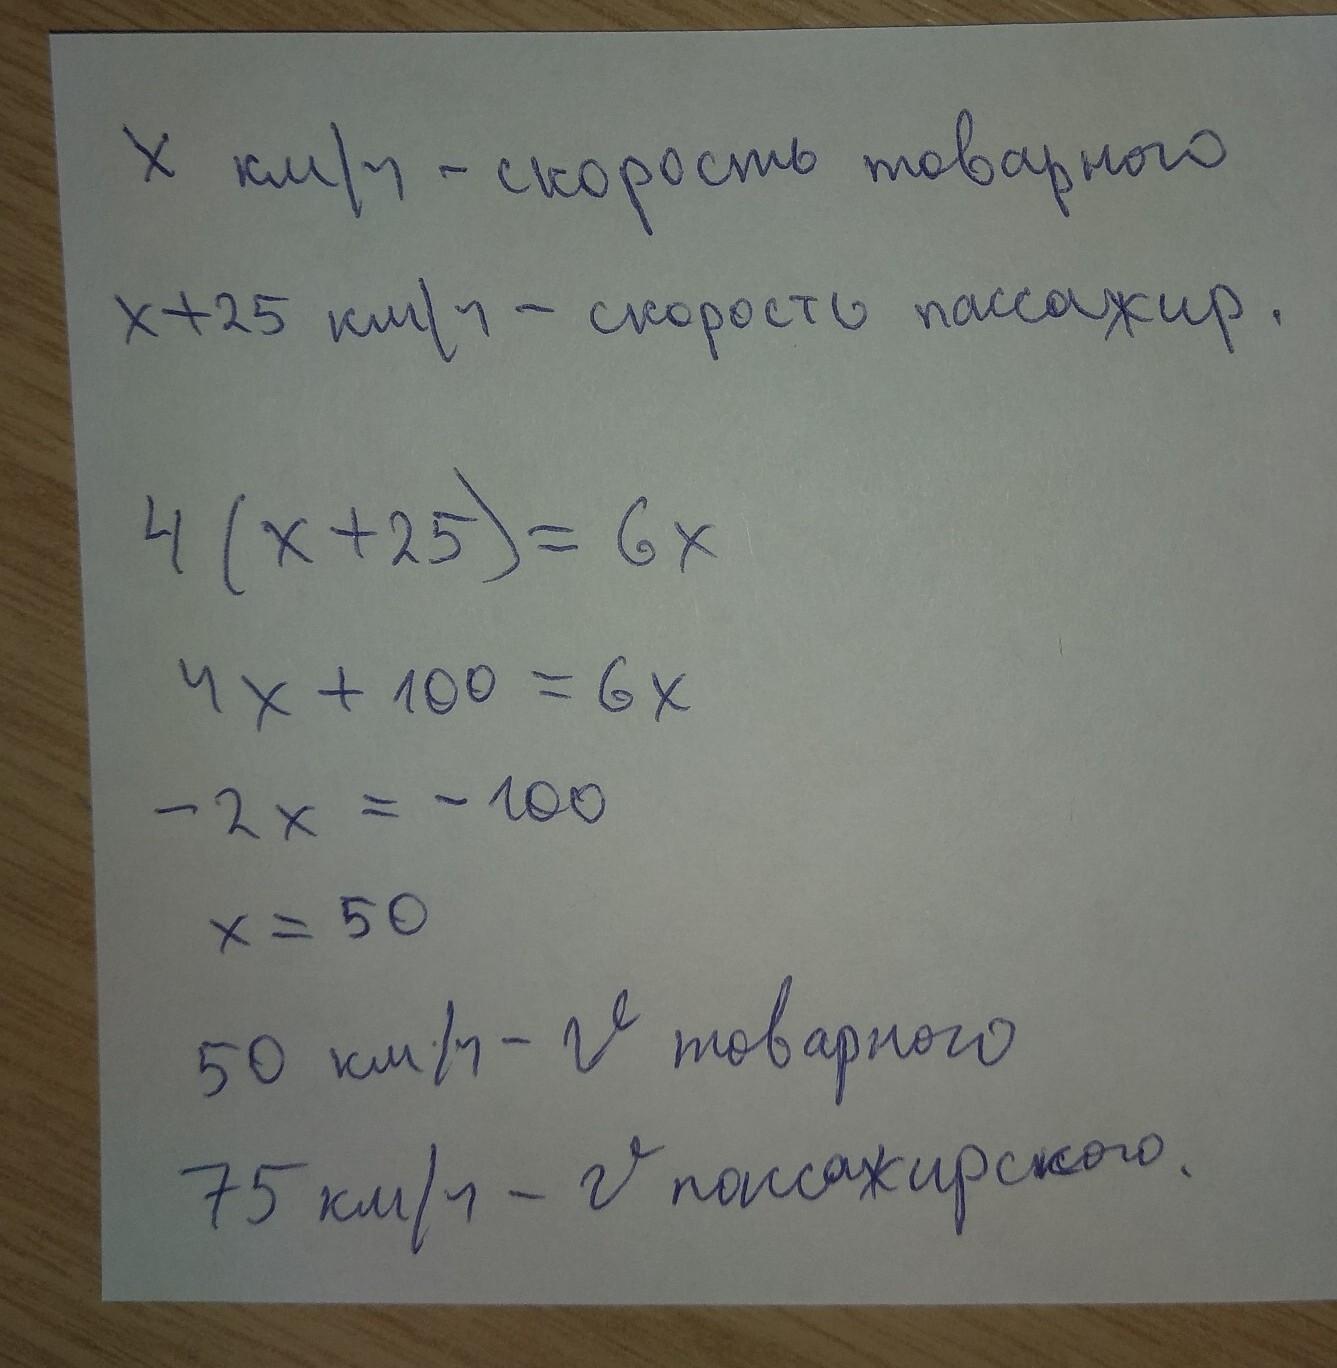 x км/ч - скорость товарного
x+25 км/ч - скорость пассажир.
4(x+25)=6x
4x+100=6x
-2x=-100
x=50
50 км/ч - v товарного
75 км/ч - v пассажирского.